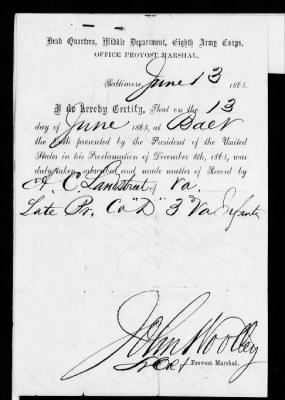 Head Quarters, Middle Department, Eighth Army Corps,
OFFICE PROVOST MARSHAL.
Baltimore, June 13 1865.
I do hereby Certify, That on the 13
day of June 1865, at Balt
the Oath presented by the President of the United
States in his Proclamation of December 8th, 1863, was
duly taken, subscribed and made matter of Record by
A. C. Landstreet of Va.
Late Pr. Co "D" 3d Va Infantry
John Woolley
Provost Marshal.